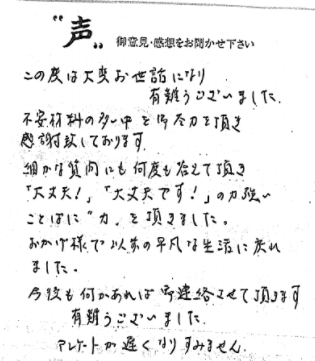 "声" 御意見・感想をお聞かせ下さい
この度は大変お世話になり
有難うございました。
不安材料の多い中を御尽力を頂き
感謝致しております。
細かな質問にも何度も答えて頂き
「大丈夫!」「大丈夫です!」の力強い
ことばに"力"を頂きました。
おかげ様で以前の平凡な生活に戻れ
ました。
今後も何かあれば御連絡させて頂きます
有難うございました。
アンケートが遅くなりすみません。